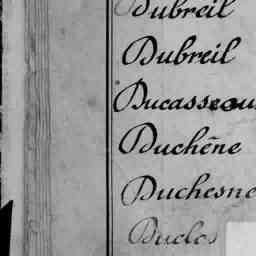 Dubreil
Dubreil
Ducasseau
Duchêne
Duchesne
Duclos